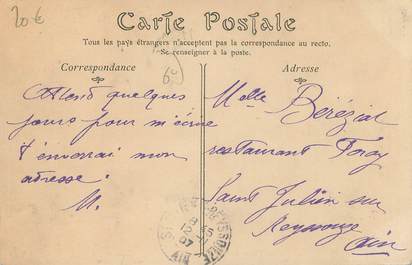 20€
Carte Postale
Tous les pays étrangers n'acceptent pas la correspondance au recto.
Se renseigner à la poste.
Correspondance
Adresse
quelques
jours pour m'écrire
t'enverrai mon
adresse.
M.
Melle Bérézial
restaurant
Saint Julien sur
Reyssouze
Ain
REYSSOUZE
AIN